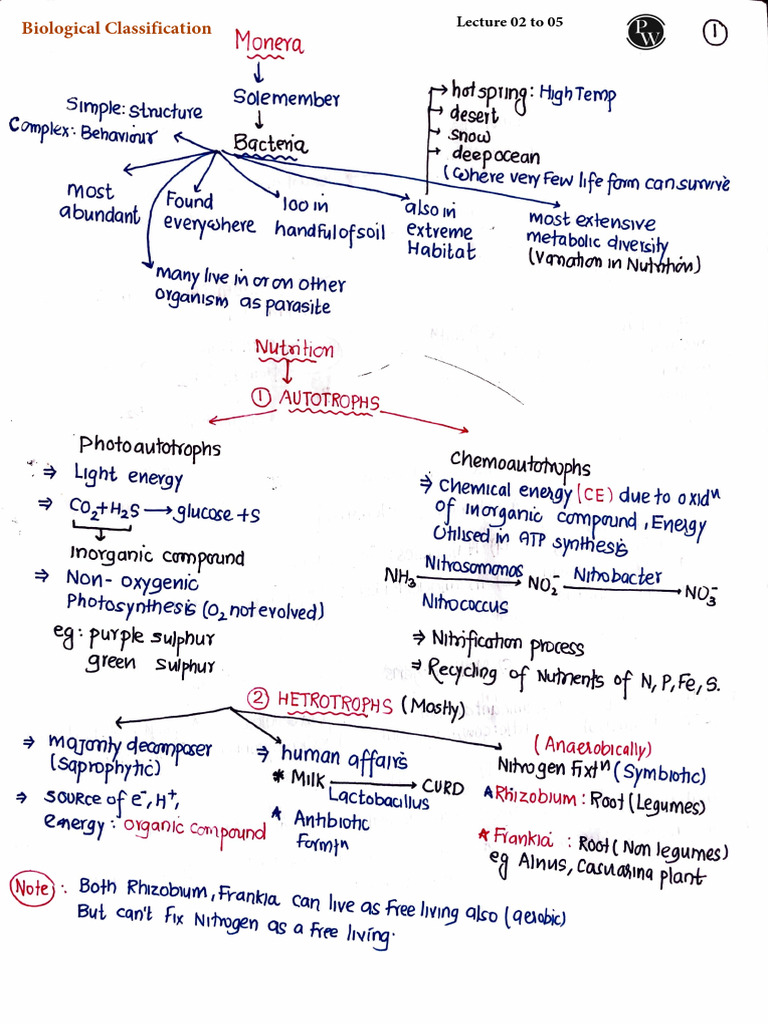 Biological Classification
Lecture 02 to 05
PW
1
Monera
Solemember
Bacteria
Simple: Structure
Complex: Behaviour
most
abundant
Found
everywhere
100 in
handful of soil
also in
extreme
Habitat
hot spring: High Temp
desert
snow
deep ocean
(where very few life form can survive
most extensive
metabolic diversity
(Variation in Nutrition)
many live in or on other
organism as parasite
Nutrition
① AUTOTROPHS
Photoautotrophs
⇒ Light energy
⇒ CO₂+H₂S → glucose + S
Inorganic compound
⇒ Non-oxygenic
Photosynthesis (O₂ not evolved)
eg: purple sulphur
green sulphur
Chemoautotrophs
⇒ Chemical energy (CE) due to oxidⁿ
of inorganic compound, Energy
Utilised in ATP synthesis
NH₃ Nitrosomonas → NO₂⁻ Nitrobacter → NO₃⁻
Nitrococcus
⇒ Nitrification process
⇒ Recycling of Nutrients of N, P, Fe, S.
② HETROTROPHS (Mostly)
⇒ majority decomposer
(saprophytic)
⇒ source of e⁻, H⁺,
energy: organic compound
⇒ human affairs
* Milk → CURD
Lactobacillus
* Antibiotic
formtⁿ
(Anaerobically)
Nitrogen Fixtⁿ (Symbiotic)
* Rhizobium: Root (Legumes)
* Frankia : Root (Non legumes)
eg Alnus, Casuarina plant
Note: Both Rhizobium, Frankia can live as free living also (aerobic)
But can't fix Nitrogen as a free living.